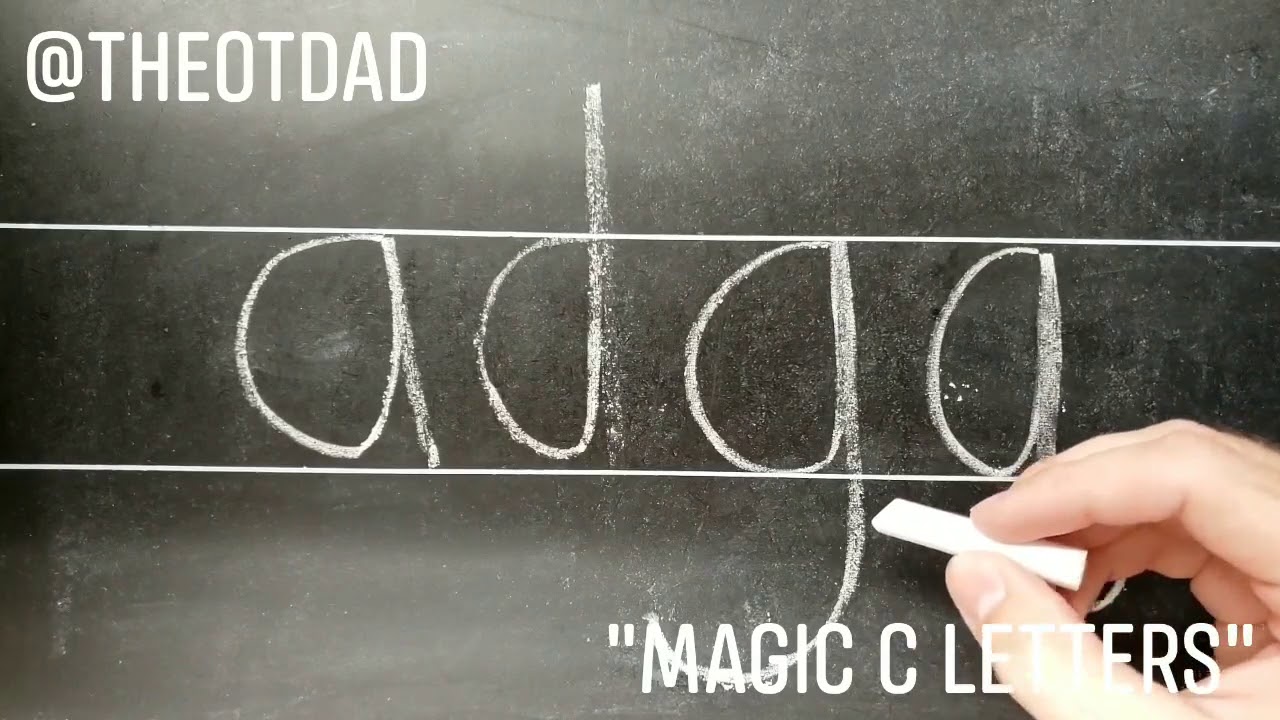 @THEOTDAD
a d g q
"MAGIC C LETTERS"